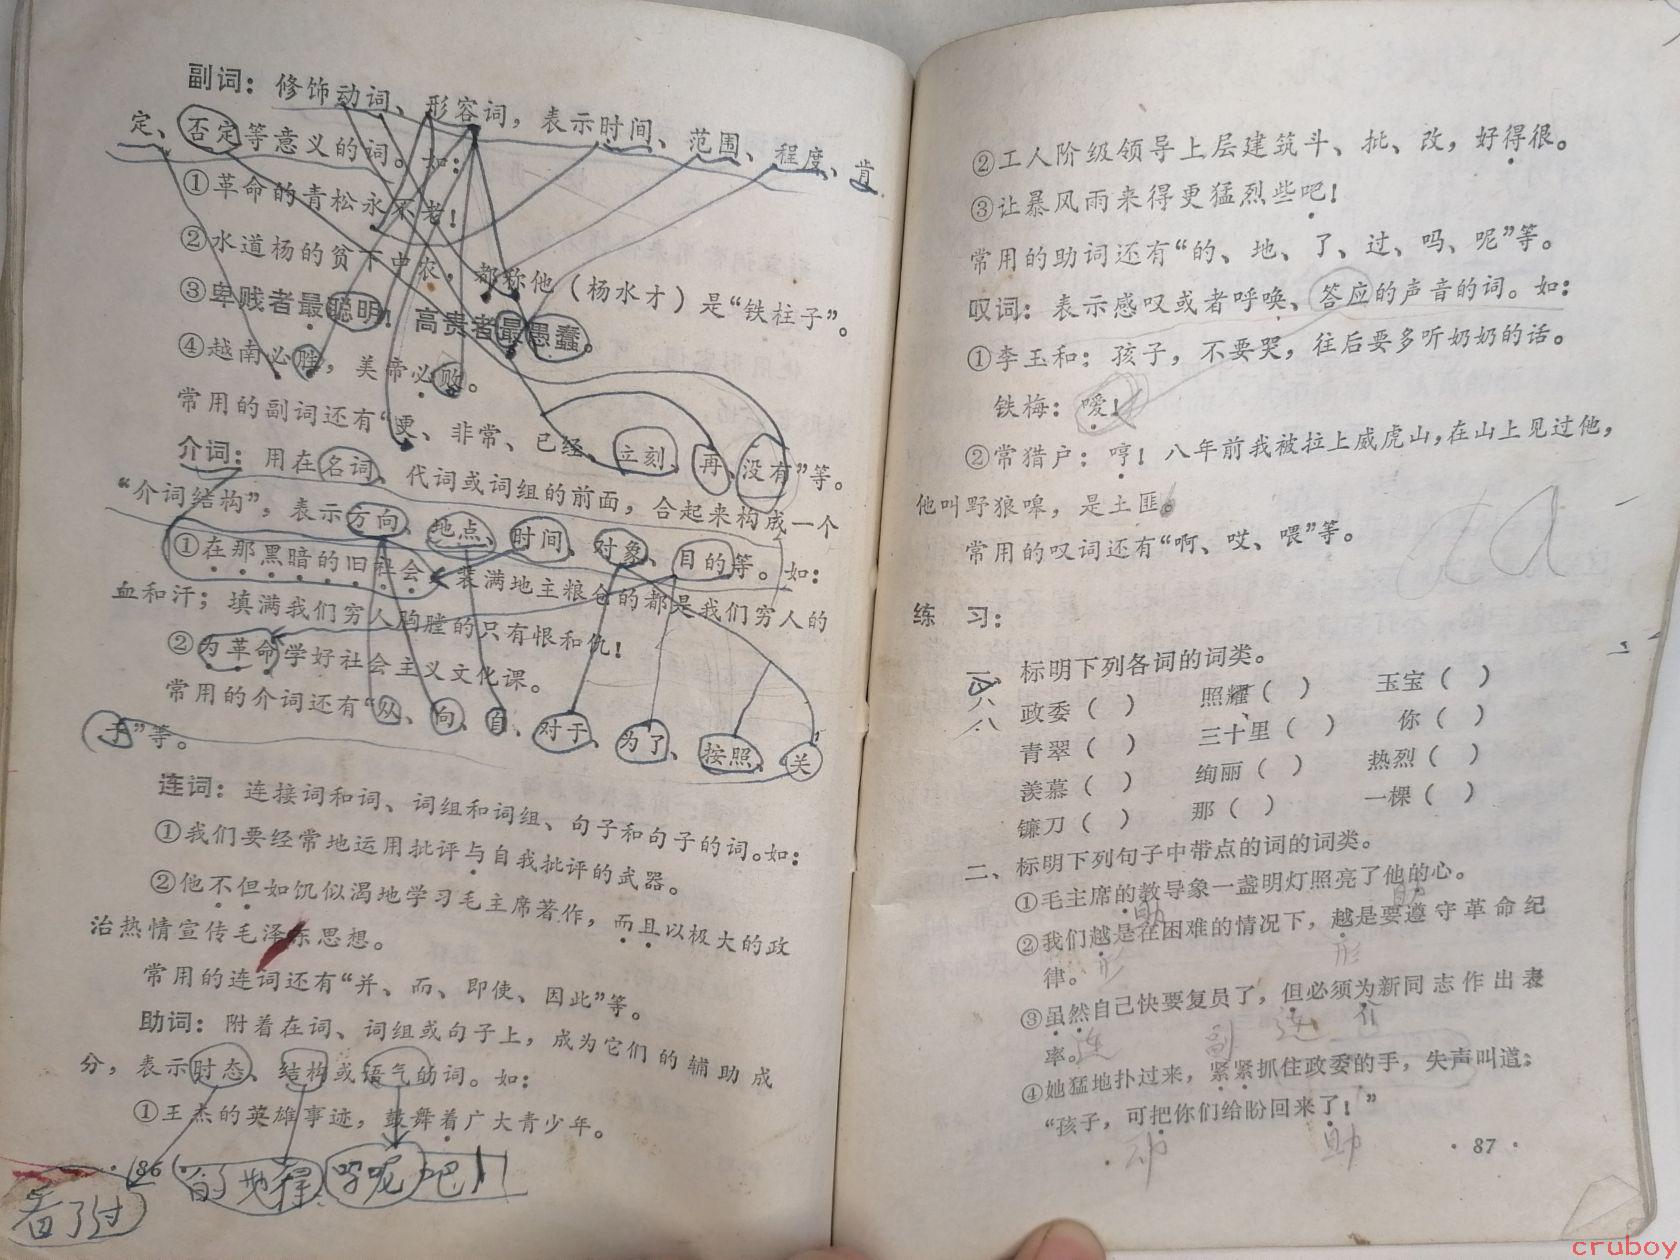 副词：修饰动词、形容词，表示时间、范围、程度、肯
定、否定等意义的词。如：
①革命的青松永不老！
②水道杨的贫下中农，都称他（杨水才）是“铁柱子”。
③卑贱者最聪明！高贵者最愚蠢。
④越南必胜，美帝必败。
常用的副词还有“更、非常、已经、立刻、再、没有”等。
介词：用在名词、代词或词组的前面，合起来构成一个
“介词结构”，表示方向、地点、时间、对象、目的等。如：
①在那黑暗的旧社会，装满地主粮仓的都是我们穷人的
血和汗；填满我们穷人胸膛的只有恨和仇！
②为革命学好社会主义文化课。
常用的介词还有“从、向、自、对于、为了、按照、关
于”等。
连词：连接词和词、词组和词组、句子和句子的词。如：
①我们要经常地运用批评与自我批评的武器。
②他不但如饥似渴地学习毛主席著作，而且以极大的政
治热情宣传毛泽东思想。
常用的连词还有“并、而、即使、因此”等。
助词：附着在词、词组或句子上，成为它们的辅助成
分，表示时态、结构或语气的词。如：
①王杰的英雄事迹，鼓舞着广大青少年。
·86·
着了过 的地得 吗呢吧
②工人阶级领导上层建筑斗、批、改，好得很。
③让暴风雨来得更猛烈些吧！
常用的助词还有“的、地、了、过、吗、呢”等。
叹词：表示感叹或者呼唤、答应的声音的词。如：
①李玉和：孩子，不要哭，往后要多听奶奶的话。
铁梅：嗳！
②常猎户：哼！八年前我被拉上威虎山，在山上见过他，
他叫野狼嗥，是土匪。
常用的叹词还有“啊、哎、喂”等。
练 习：
标明下列各词的词类。
政委（ ） 照耀（ ） 玉宝（ ）
青翠（ ） 三十里（ ） 你（ ）
羡慕（ ） 绚丽（ ） 热烈（ ）
镰刀（ ） 那（ ） 一棵（ ）
二、标明下列句子中带点的词的词类。
①毛主席的教导象一盏明灯照亮了他的心。
助 助
②我们越是在困难的情况下，越是要遵守革命纪
形 形
律。
③虽然自己快要复员了，但必须为新同志作出表
连 副 连 介
率。
④她猛地扑过来，紧紧抓住政委的手，失声叫道：
“孩子，可把你们给盼回来了！”
动 助
·87·
cruboy